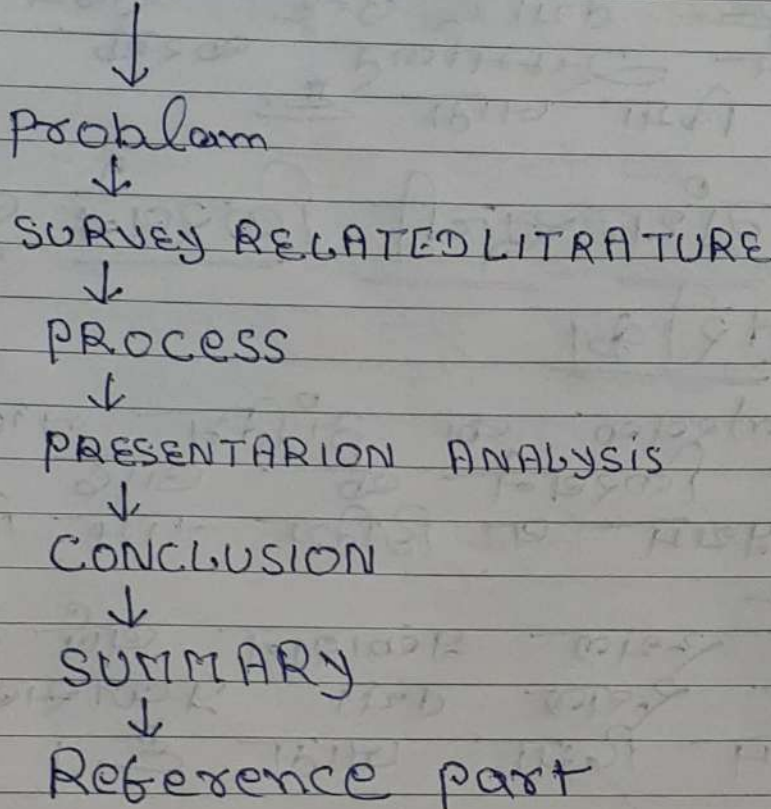 ↓
Problam
↓
SURVEY RELATED LITRATURE
↓
PROCESS
↓
PRESENTARION ANALYSIS
↓
CONCLUSION
↓
SUMMARY
↓
Reference part